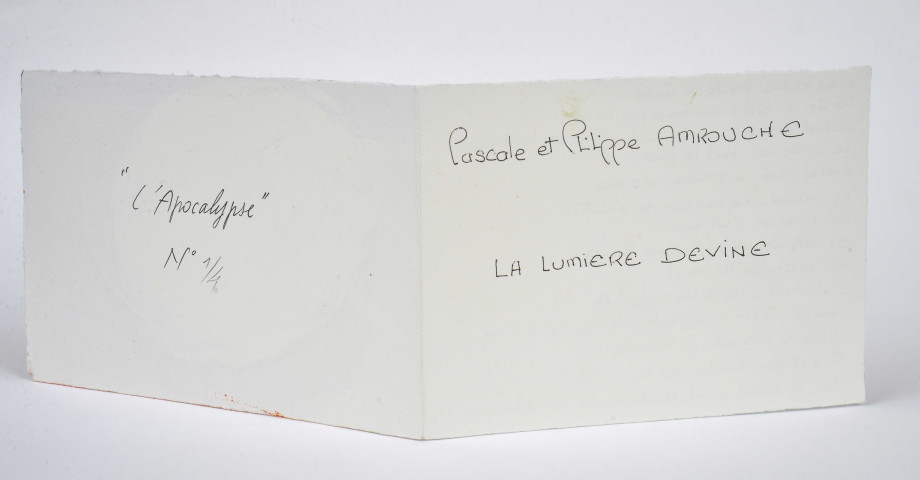 "L'Apocalypse"
N° 1/4
Pascale et Philippe AMROUCHE
LA LUMIERE DEVINE